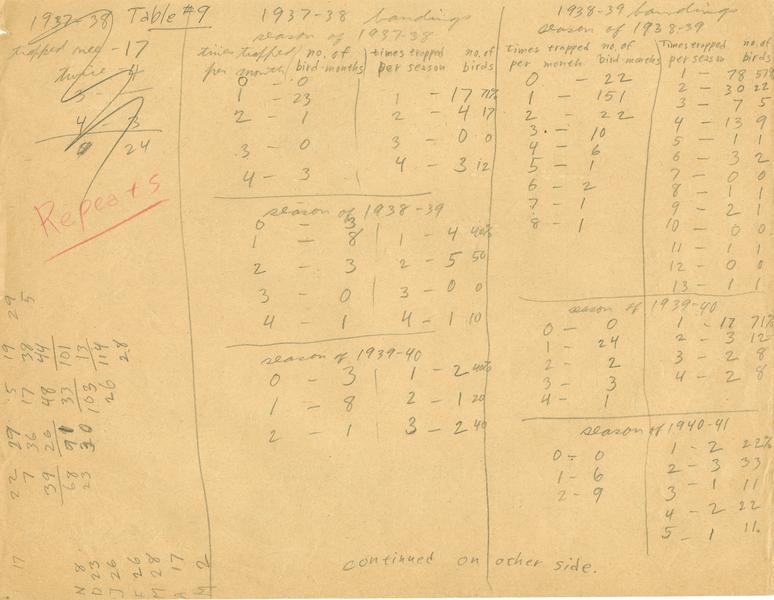 1937-38 Table #9
trapped once - 17
twice - 4
3 -
4 - 3
24
Repeats
1937-38 bandings
season of 1937-38
times trapped per month / no. of bird-months
0 - 0
1 - 23
2 - 1
3 - 0
4 - 3
times trapped per season / no. of birds
1 - 17 71%
2 - 4 17
3 - 0 0
4 - 3 12
season of 1938-39
0 - 3
1 - 8
2 - 3
3 - 0
4 - 1
1 - 4 40%
2 - 5 50
3 - 0 0
4 - 1 10
season of 1939-40
0 - 3
1 - 8
2 - 1
1 - 2 40%
2 - 1 20
3 - 2 40
1938-39 bandings
season of 1938-39
times trapped per month no. of bird-months
0 - 22
1 - 151
2 - 22
3 - 10
4 - 6
5 - 1
6 - 2
7 - 1
8 - 1
times trapped per season no. of birds
1 - 78 57%
2 - 30 22
3 - 7 5
4 - 13 9
5 - 1 1
6 - 3 2
7 - 0 0
8 - 1 1
9 - 2 1
10 - 0 0
11 - 1 1
12 - 0 0
13 - 1 1
season of 1939-40
0 - 0
1 - 24
2 - 2
3 - 3
4 - 1
1 - 17 71%
2 - 3 12
3 - 2 8
4 - 2 8
season of 1940-41
0 - 0
1 - 6
2 - 9
1 - 2 22%
2 - 3 33
3 - 1 11
4 - 2 22
5 - 1 11.
continued on other side.
22 29 5 19 29
7 36 17 38 5
39 26 48 44
68 91 33 101
23 30 103 13
26 114
28
17
N 8
D 23
J 26
F 26
M 28
A 17
M 2